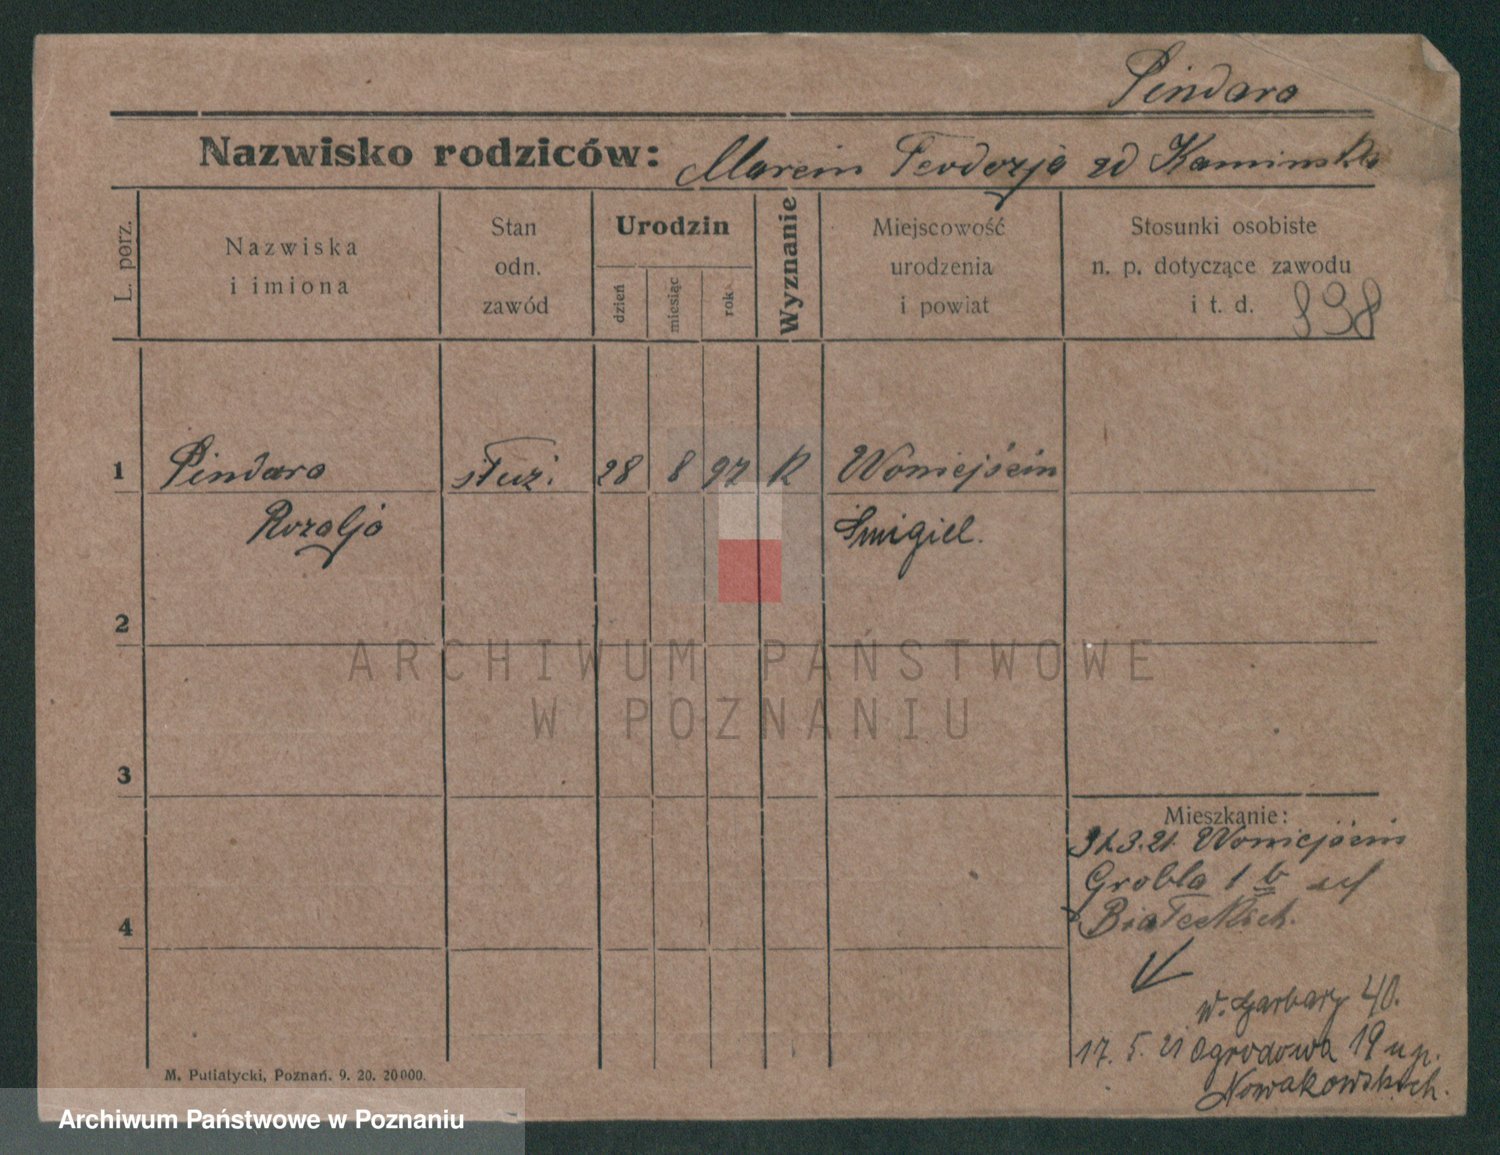 Pindara
Nazwisko rodziców: Marcin Teodozja zd Kamińska
L. porz.
Nazwiska
i imiona
Stan
odn.
zawód
Urodzin
dzień
miesiąc
rok
Wyznanie
Miejscowość
urodzenia
i powiat
Stosunki osobiste
n. p. dotyczące zawodu
i t. d.
838
1 Pindara służ. 28 8 97 R Woniejścin
Rozalja Śmigiel.
2
ARCHIWUM PAŃSTWOWE
W POZNANIU
3
Mieszkanie:
31.3.21. Woniejścin
Grobla 1 b
Białeckich.
4
w. Garbary 40.
17. 5. 21 Ogrodowa 19 u p.
Nowakowskich.
M. Putiatycki, Poznań. 9. 20. 20000.
Archiwum Państwowe w Poznaniu